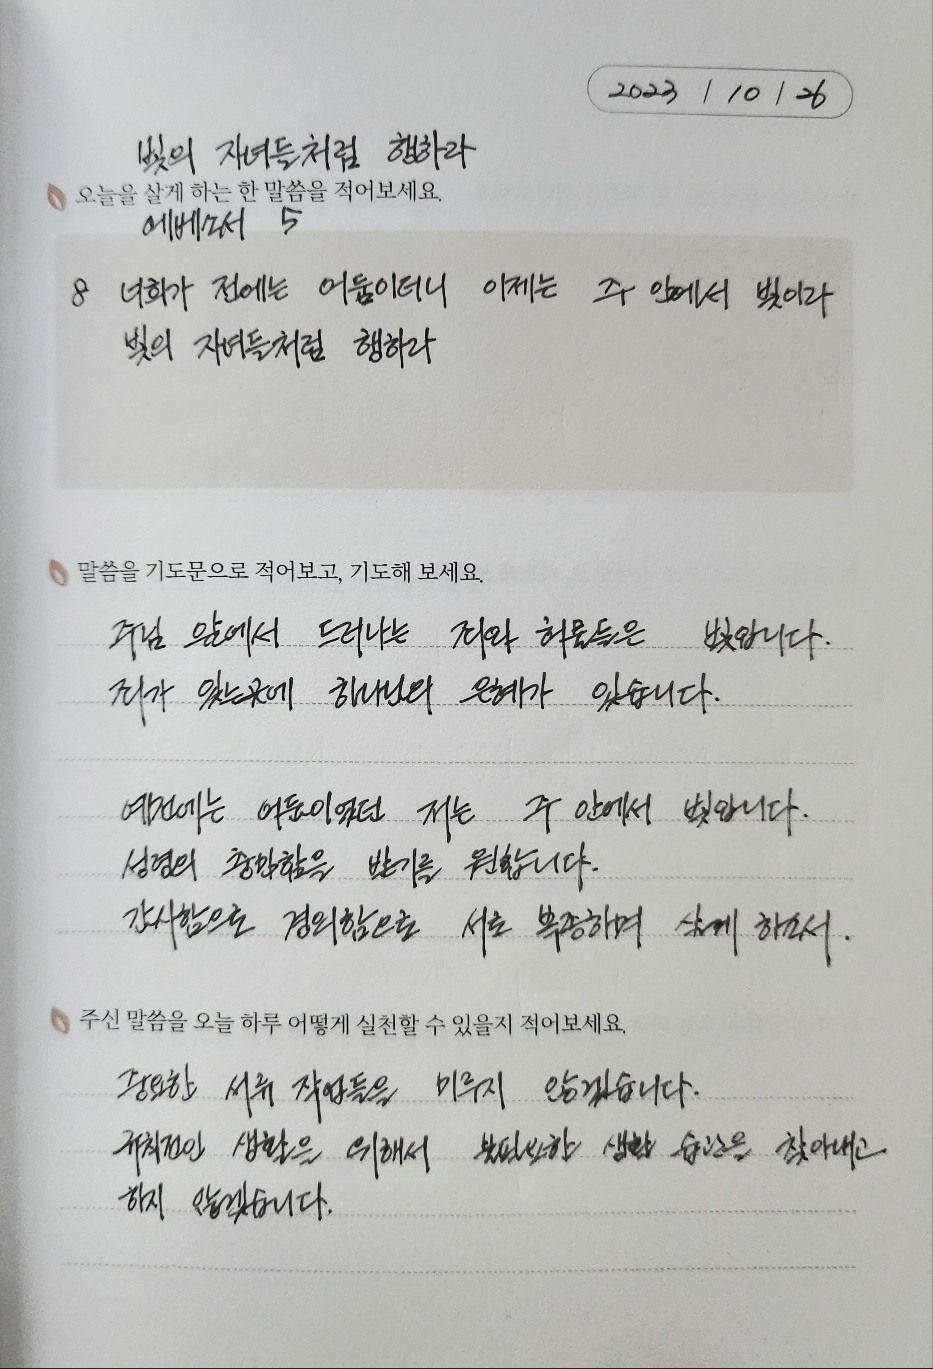 2023 / 10 / 26
빛의 자녀들처럼 행하라
오늘을 살게 하는 한 말씀을 적어보세요.
에베소서 5
8 너희가 전에는 어둠이더니 이제는 주 안에서 빛이라
빛의 자녀들처럼 행하라
말씀을 기도문으로 적어보고, 기도해 보세요.
주님 앞에서 드러나는 죄와 허물들은 빛입니다.
죄가 있는곳에 하나님의 은혜가 있습니다.
예전에는 어둠이었던 저는 주 안에서 빛입니다.
성령의 충만함을 받기를 원합니다.
감사함으로 경외함으로 서로 복종하며 살게 하소서.
주신 말씀을 오늘 하루 어떻게 실천할 수 있을지 적어보세요.
중요한 서류 작업들을 미루지 않겠습니다.
규칙적인 생활을 위해서 불필요한 생활 습관을 찾아내고
하지 않겠습니다.